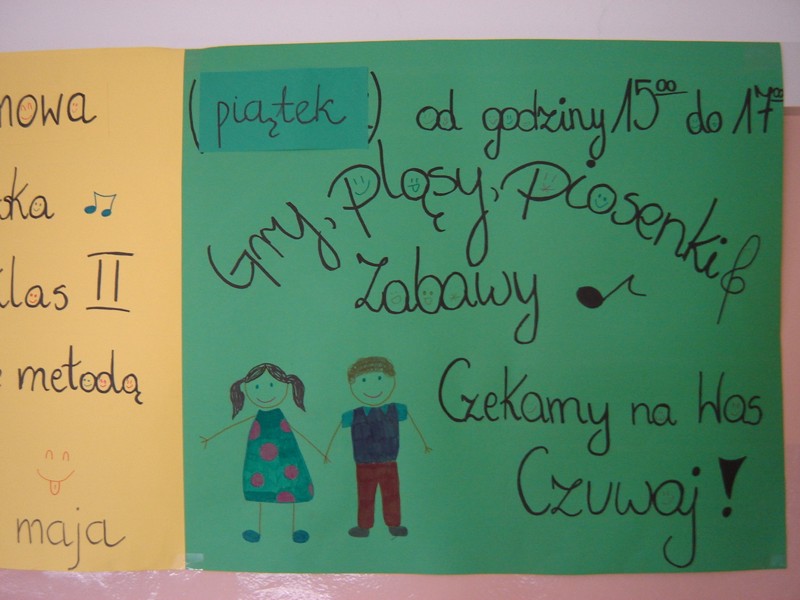 nowa
ka
klas II
metodą
maja
(piątek) od godziny 15⁰⁰ do 17⁰⁰
Gry, pląsy, piosenki
Zabawy
Czekamy na Was
Czuwaj!